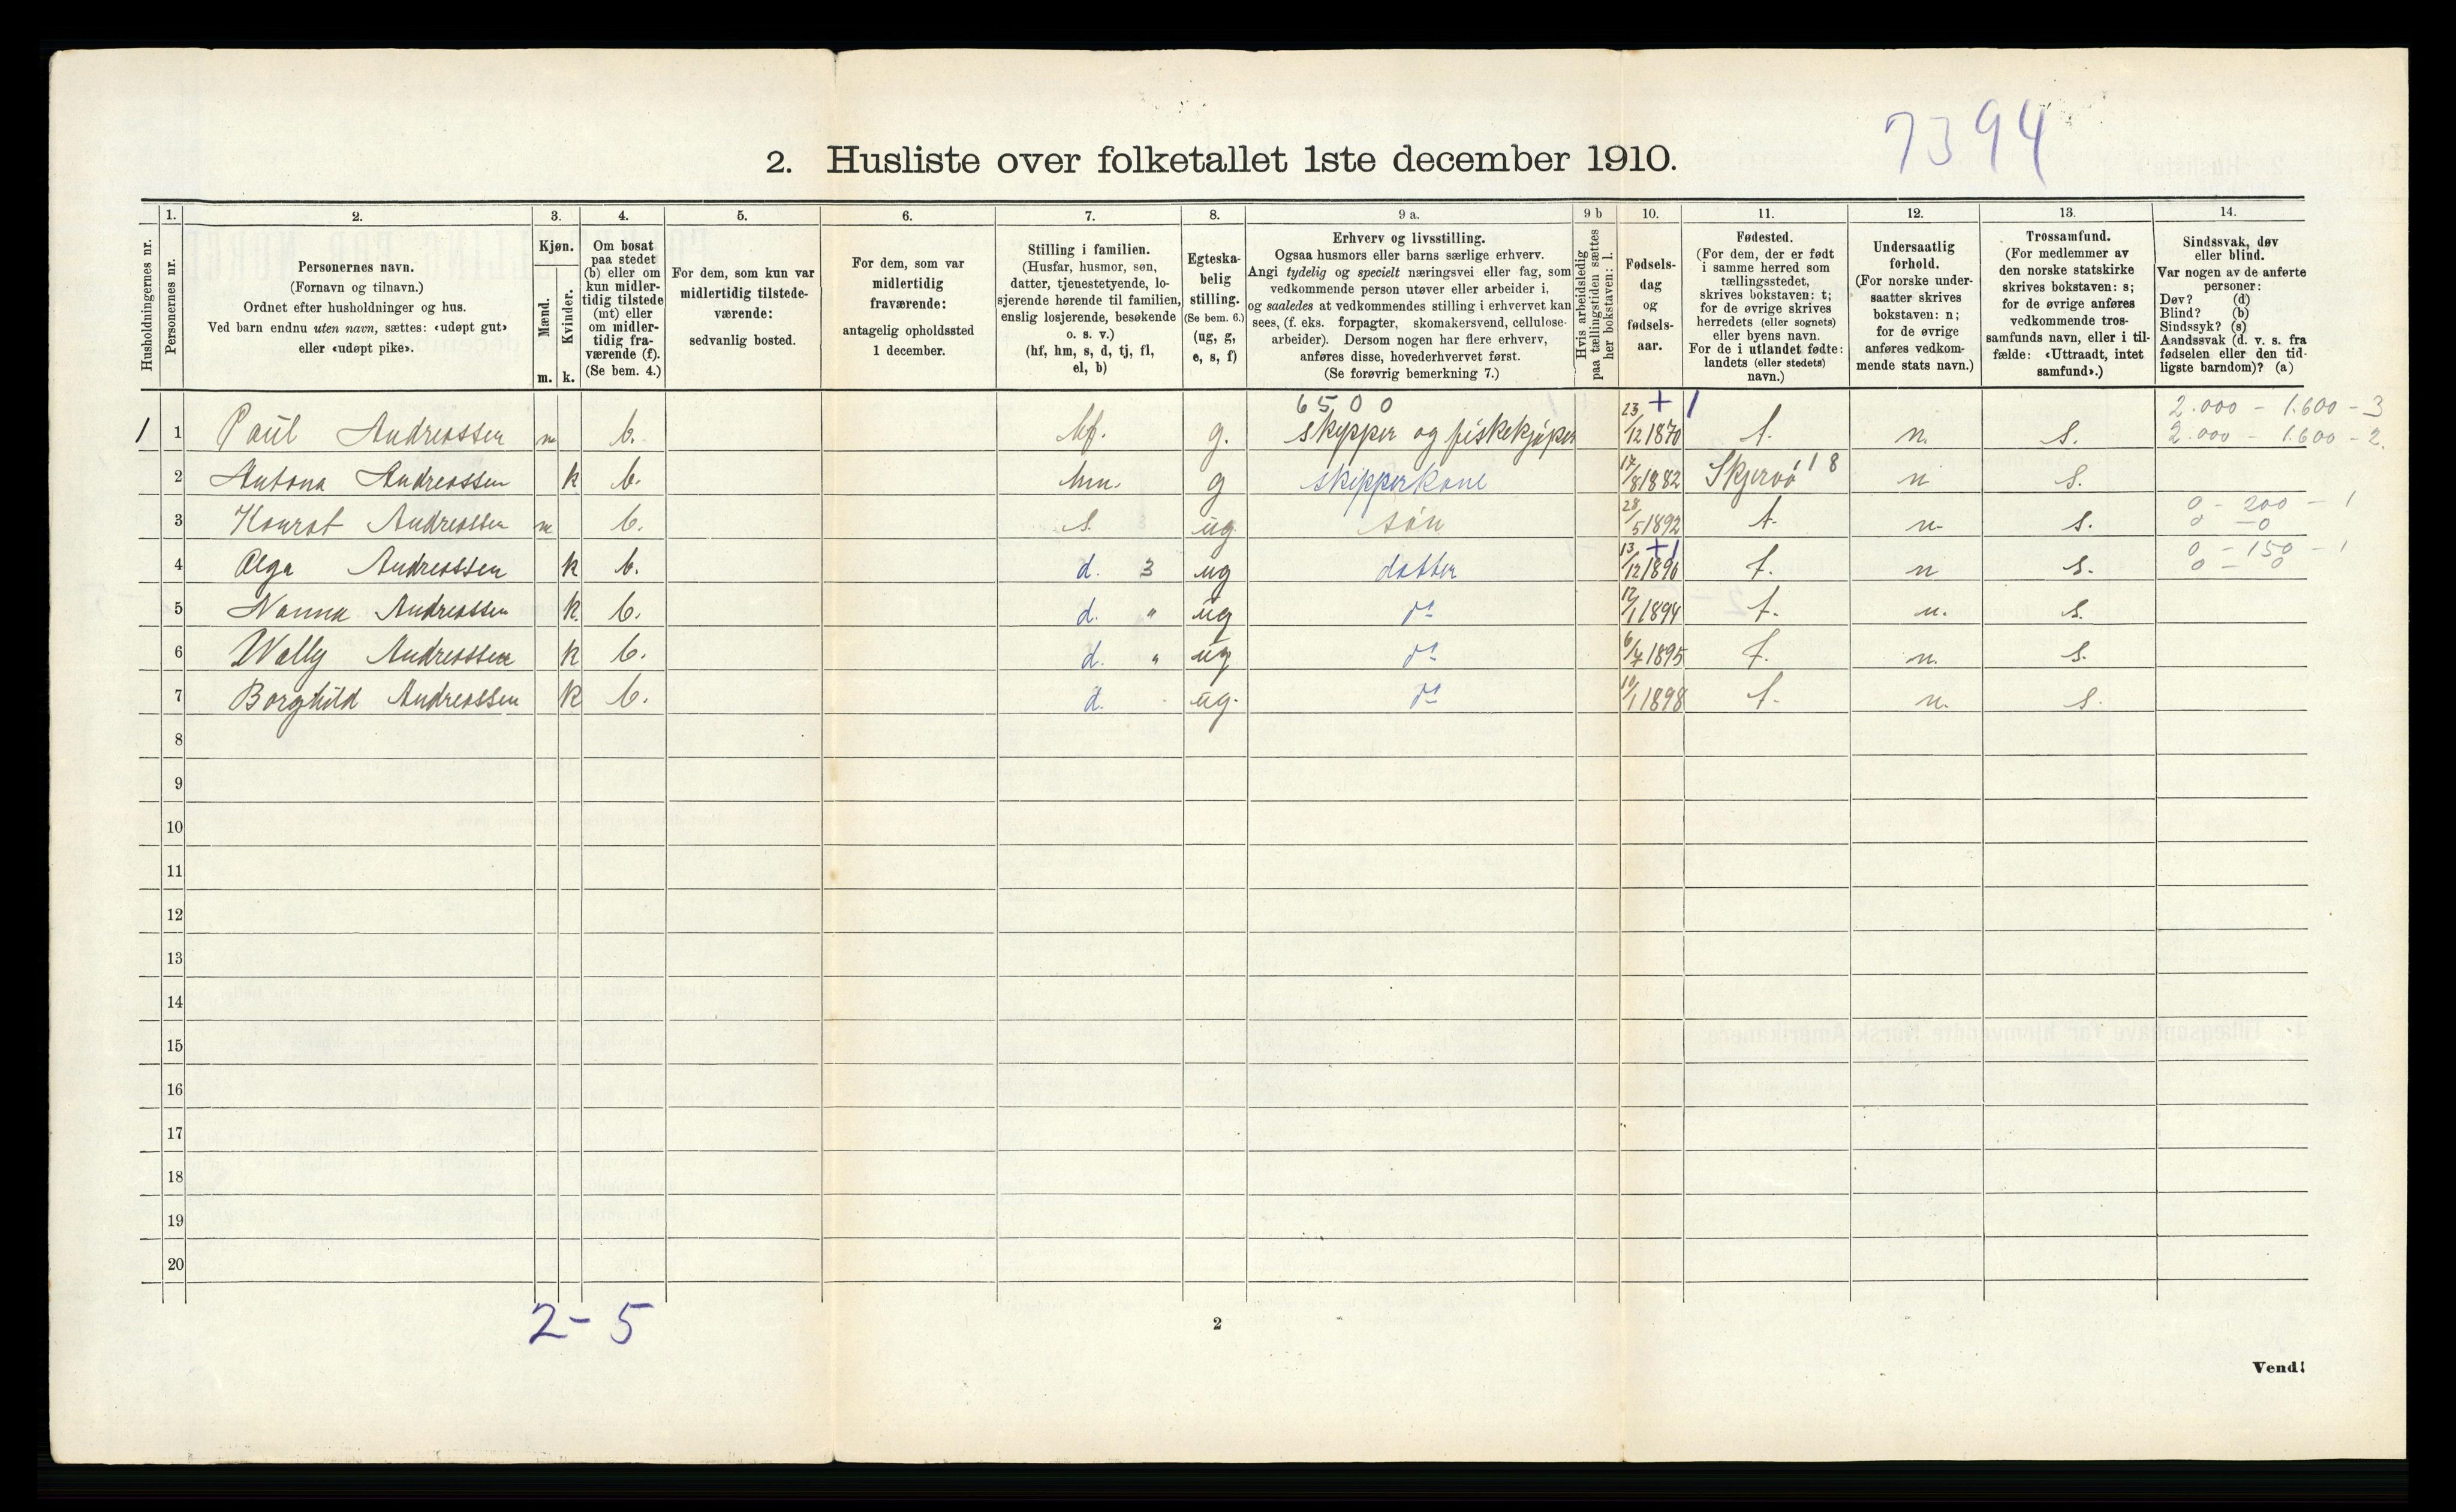 7394
2. Husliste over folketallet 1ste december 1910.
Husholdningernes nr.
1.
Personernes nr.
2.
Personernes navn.
(Fornavn og tilnavn.)
Ordnet efter husholdninger og hus.
Ved barn endnu uten navn, sættes: «udøpt gut»
eller «udøpt pike».
3.
Kjøn.
Mænd.
Kvinder.
m. k.
4.
Om bosat
paa stedet
(b) eller om
kun midler-
tidig tilstede
(mt) eller
om midler-
tidig fra-
værende (f).
(Se bem. 4.)
5.
For dem, som kun var
midlertidig tilstede-
værende:
sedvanlig bosted.
6.
For dem, som var
midlertidig
fraværende:
antagelig opholdssted
1 december.
7.
Stilling i familien.
(Husfar, husmor, søn,
datter, tjenestetyende, lo-
sjerende hørende til familien,
enslig losjerende, besøkende
o. s. v.)
(hf, hm, s, d, tj, fl,
el, b)
8.
Egteska-
belig
stilling.
(Se bem. 6.)
(ug, g,
e, s, f)
9 a.
Erhverv og livsstilling.
Ogsaa husmors eller barns særlige erhverv.
Angi tydelig og specielt næringsvei eller fag, som
vedkommende person utøver eller arbeider i,
og saaledes at vedkommendes stilling i erhvervet kan
sees, (f. eks. forpagter, skomakersvend, cellulose-
arbeider). Dersom nogen har flere erhverv,
anføres disse, hovederhvervet først.
(Se forøvrig bemerkning 7.)
9 b
Hvis arbeidsledig
paa tællingstiden sættes
her bokstaven: l.
10.
Fødsels-
dag
og
fødsels-
aar.
11.
Fødested.
(For dem, der er født
i samme herred som
tællingsstedet,
skrives bokstaven: t;
for de øvrige skrives
herredets (eller sognets)
eller byens navn.
For de i utlandet fødte:
landets (eller stedets)
navn.)
12.
Undersaatlig
forhold.
(For norske under-
saatter skrives
bokstaven: n;
for de øvrige
anføres vedkom-
mende stats navn.)
13.
Trossamfund.
(For medlemmer av
den norske statskirke
skrives bokstaven: s;
for de øvrige anføres
vedkommende tros-
samfunds navn, eller i til-
fælde: «Uttraadt, intet
samfund».)
14.
Sindssvak, døv
eller blind.
Var nogen av de anførte
personer:
Døv? (d)
Blind? (b)
Sindssyk? (s)
Aandssvak (d. v. s. fra
fødselen eller den tid-
ligste barndom)? (a)
6500 + 1 2.000 - 1.600 - 3
1 1 Paul Andreassen m b. hf. g. skipper og fiskekjøper 23/12 1870 t. n. s. 2.000 - 1.600 - 2.
2 Antona Andreassen k b. hm. g skipperkone 17/8 1882 Skjervö 18 n s.
3 Konrat Andreassen m b. s. ug. søn 28/5 1892 t. n. s. 0 - 200 - 1
0 - 0
4 Olga Andreassen k b. d. 3 ug datter 13/12 1896 +1 t. n s. 0 - 150 - 1
0 - 0
5 Nanna Andreassen k. b. d. " ug do 12/1 1894 t. n. s.
6 Wally Andreassen k b. d. " ug do 6/7 1895 t. n. s.
7 Borghild Andreassen k b. d. ug. do 10/1 1898 t. n. s.
8
9
10
11
12
13
14
15
16
17
18
19
20
2 - 5
2
Vend!